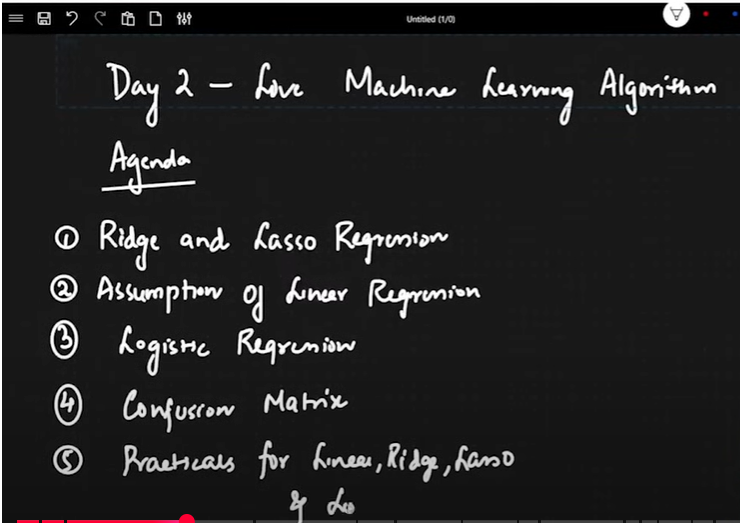 Untitled (1/0)
Day 2 – Live Machine Learning Algorithm
Agenda
① Ridge and Lasso Regression
② Assumption of Linear Regression
③ Logistic Regression
④ Confusion Matrix
⑤ Practicals for Linear, Ridge, Lasso
& Lo